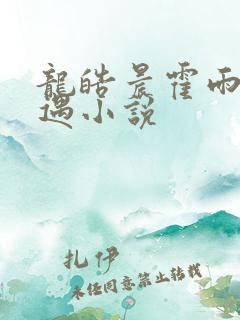 龍皓晨霍雨
遇小說
扎伊
未經同意禁止轉載